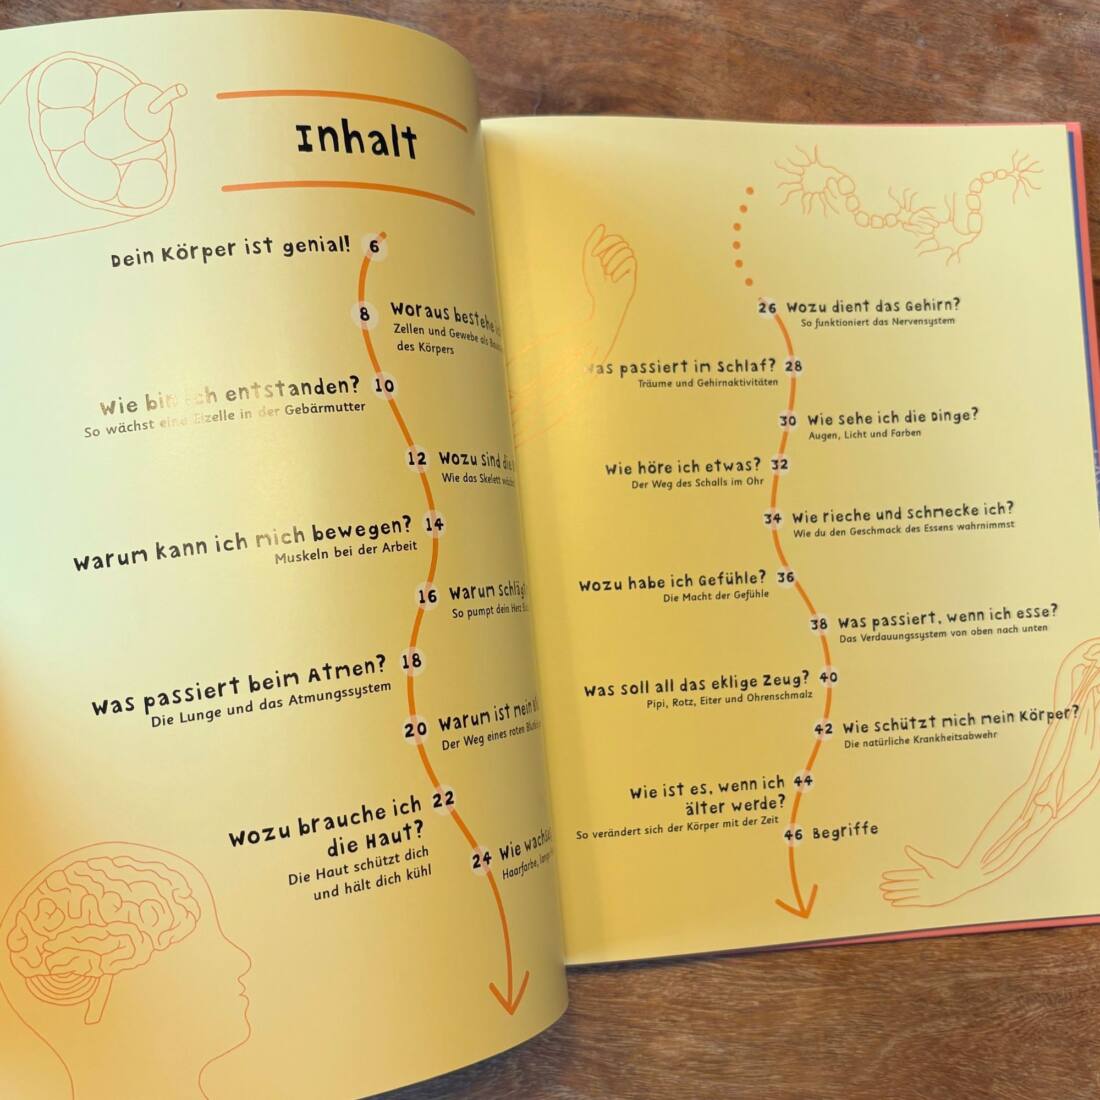 Inhalt
Dein Körper ist genial! 6
8 Woraus bestehe
Zellen und Gewebe als
des Körpers
Wie bin ich entstanden? 10
So wächst eine Eizelle in der Gebärmutter
12 Wozu sind die
Wie das Skelett
Warum kann ich mich bewegen? 14
Muskeln bei der Arbeit
16 Warum
So pumpt dein Herz
Was passiert beim Atmen? 18
Die Lunge und das Atmungssystem
20 Warum ist mein
Der Weg eines roten
Wozu brauche ich 22
die Haut?
Die Haut schützt dich
und hält dich kühl
24 Wie
Haarfarbe,
26 Wozu dient das Gehirn?
So funktioniert das Nervensystem
Was passiert im Schlaf? 28
Träume und Gehirnaktivitäten
30 Wie sehe ich die Dinge?
Augen, Licht und Farben
Wie höre ich etwas? 32
Der Weg des Schalls im Ohr
34 Wie rieche und schmecke ich?
Wie du den Geschmack des Essens wahrnimmst
Wozu habe ich Gefühle? 36
Die Macht der Gefühle
38 Was passiert, wenn ich esse?
Das Verdauungssystem von oben nach unten
Was soll all das eklige Zeug? 40
Pipi, Rotz, Eiter und Ohrenschmalz
42 Wie schützt mich mein Körper?
Die natürliche Krankheitsabwehr
Wie ist es, wenn ich 44
älter werde?
So verändert sich der Körper mit der Zeit
46 Begriffe